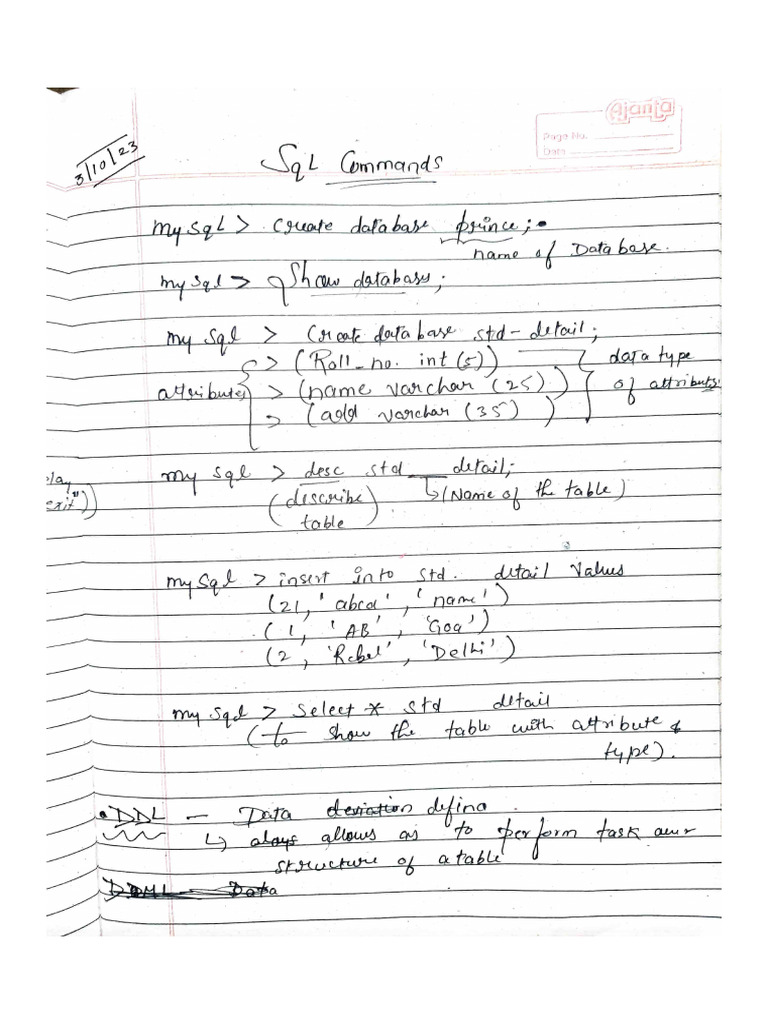 Ajanta
Page No.
Date
3/10/23
SqL Commands
mysqL > create database prince;
name of Database.
mysql > Show databases;
my sql > Create database std-detail;
> (Roll_no. int (5)) data type
attributes > (name varchar (25)) of attributes
> (add varchar (35))
my sql > desc std_detail;
play
exit"))
(describe table) ↳ (Name of the table)
mysql > insert into std. detail values
(21, 'abcd', 'name')
(1, 'AB', 'Goa')
(2, 'Rebel', 'Delhi')
my sql > select * std detail
(to show the table with attribute &
type).
• DDL - Data deviation defino
↳ always allows as to perform task
structure of a table
DDML - Data